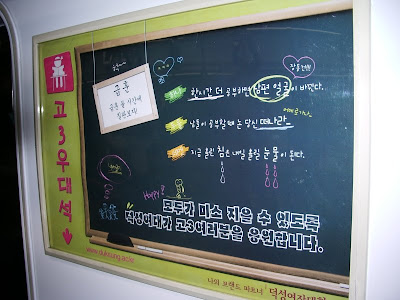 고3우대석
www.duksung.ac.kr
급훈
급훈 볼 시간에
칠판보자!
한시간 더 공부하면 남편 얼굴이 바뀐다.
남들이 공부할 때는 당신 떠나라~
지금 흘린 침은 내일 흘릴 눈물이 된다.
Happy!
모두가 미소 지을 수 있도록
덕성여대가 고3여러분을 응원합니다.
나의 브랜드 파트너 덕성여자대